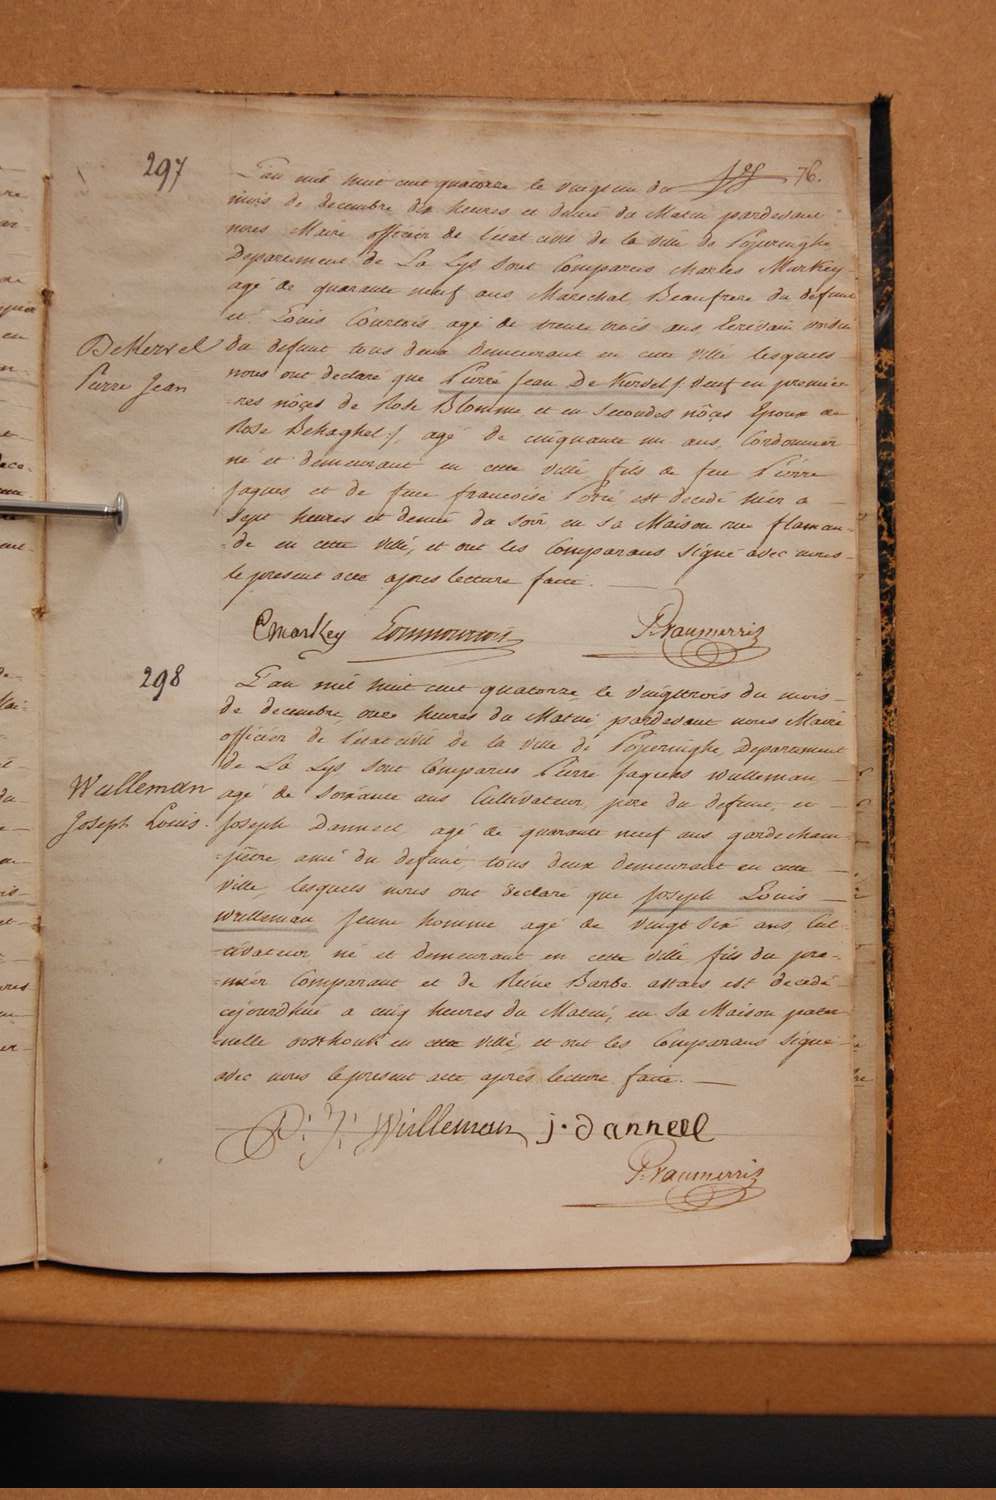 76.
297
L'an mil huit cent quatorze le vingt un du
mois de decembre dix heures et demie du Matin pardevant
nous Maire officier de l'état civil de la ville de Poperinghe
Departement de La Lys sont Comparus Charles Markey
agé de quarante neuf ans Marechal Beaufrere du defunt
et Louis Courtois agé de trente trois ans Ecrivain voisin
DeKervel
du defunt tous deux demeurant en cette ville lesquels
Pierre Jean
nous ont declaré que Pierre Jean De Kervel / veuf en premie-
-res nôçes de Rose Blomme et en secondes nôçes Epoux de
Rose Behaghel /, agé de cinquante un ans, Cordonnier
né et demeurant en cette ville fils de feu Pierre
Jaques et de feue francoise est decedé hier a
sept heures et demie du soir en sa Maison rue flaman-
-de en cette ville, et ont les Comparans signé avec nous
le present acte apres lecture faite.
CMarKey
298
L'an mil huit cent quatorze le vingt trois du mois
de decembre, onze heures du Matin, pardevant nous Maire
officier de l'état civil de la ville de Poperinghe, Departement
de La Lys sont Comparus Pierre Jaques Wulleman
Wulleman
agé de soixante ans Cultivateur, pere du defunt, et
Joseph Louis.
Joseph Danneel agé de quarante neuf ans garde cham-
-pêtre ami du defunt, tous deux demeurant en cette
ville, lesquels nous ont declaré que Joseph Louis
Wulleman jeune homme agé de vingt six ans Cul-
-tivateur, né et demeurant en cette ville fils du pre-
-mier Comparant et de Reine Barbe est decedé
cejourdhui a cinq heures du Matin, en sa Maison pater-
-nelle oosthouk en cette ville, et ont les Comparans signé
avec nous le present acte après lecture faite.
P: J: Wulleman j. danneel